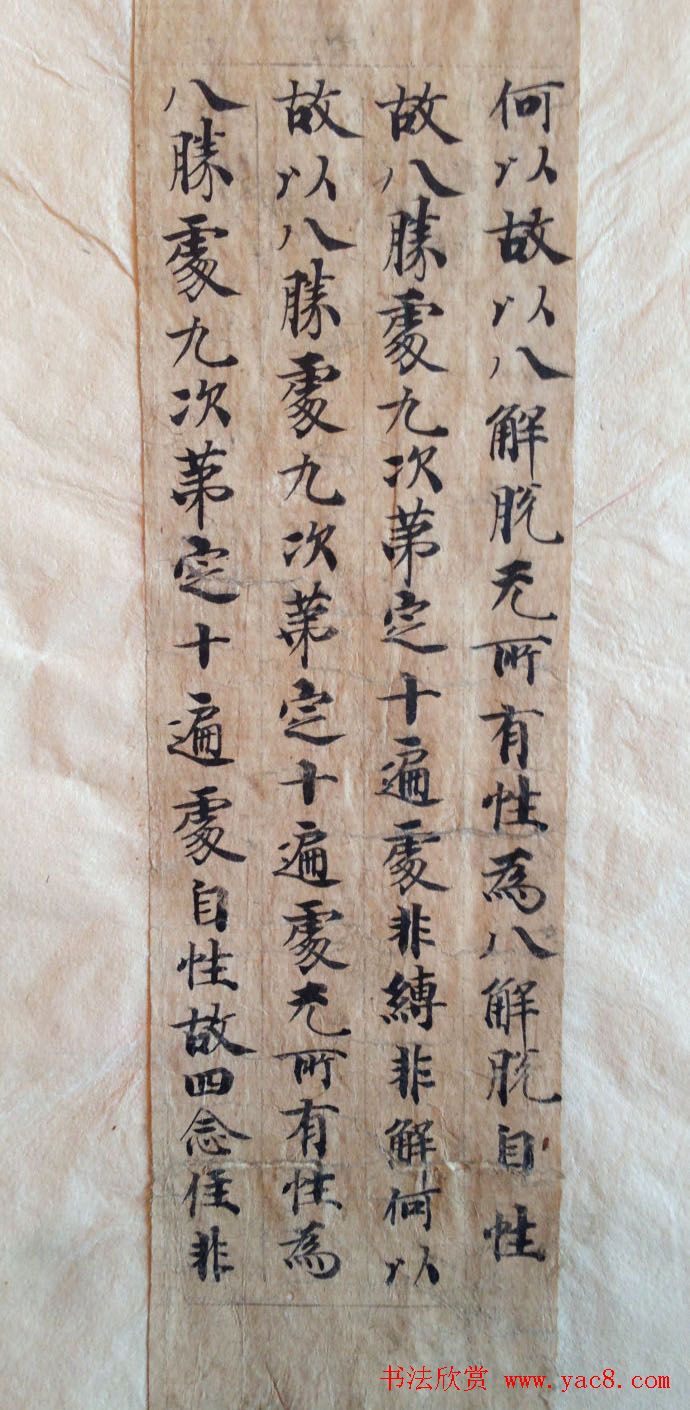 何以故以八解脱无所有性為八解脱自性
故八勝處九次苐定十遍處非縛非解何以
故以八勝處九次苐定十遍處无所有性為
八勝處九次苐定十遍處自性故四念住非
书法欣赏 www.yac8.com